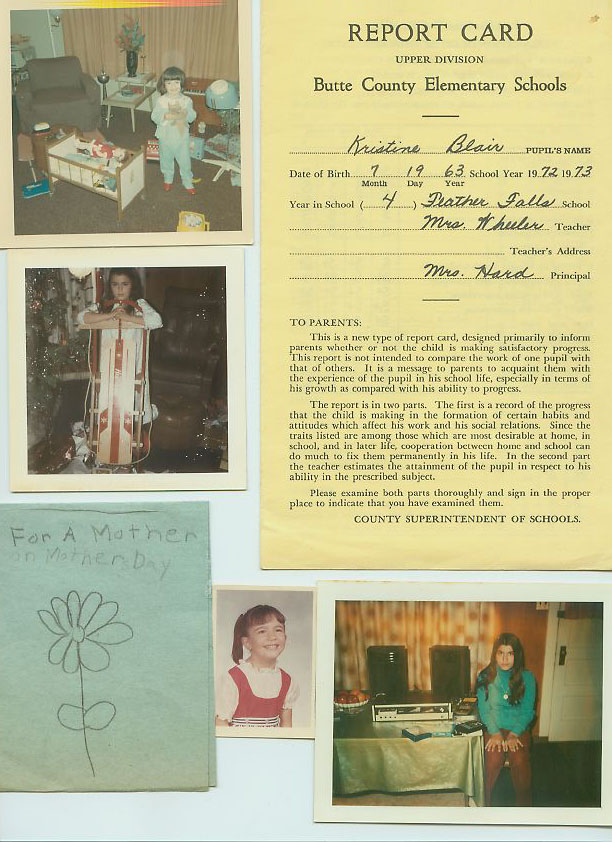 REPORT CARD
UPPER DIVISION
Butte County Elementary Schools
Kristine Blair PUPIL'S NAME
Date of Birth 7 19 63 School Year 1972 1973
Month Day Year
Year in School ( 4 ) Feather Falls School
Mrs. Wheeler Teacher
Teacher's Address
Mrs. Hard Principal
TO PARENTS:
This is a new type of report card, designed primarily to inform
parents whether or not the child is making satisfactory progress.
This report is not intended to compare the work of one pupil with
that of others. It is a message to parents to acquaint them with
the experience of the pupil in his school life, especially in terms of
his growth as compared with his ability to progress.
The report is in two parts. The first is a record of the progress
that the child is making in the formation of certain habits and
attitudes which affect his work and his social relations. Since the
traits listed are among those which are most desirable at home, in
school, and in later life, cooperation between home and school can
do much to fix them permanently in his life. In the second part
the teacher estimates the attainment of the pupil in respect to his
ability in the prescribed subject.
Please examine both parts thoroughly and sign in the proper
place to indicate that you have examined them.
COUNTY SUPERINTENDENT OF SCHOOLS.
For A Mother
on Mothers Day